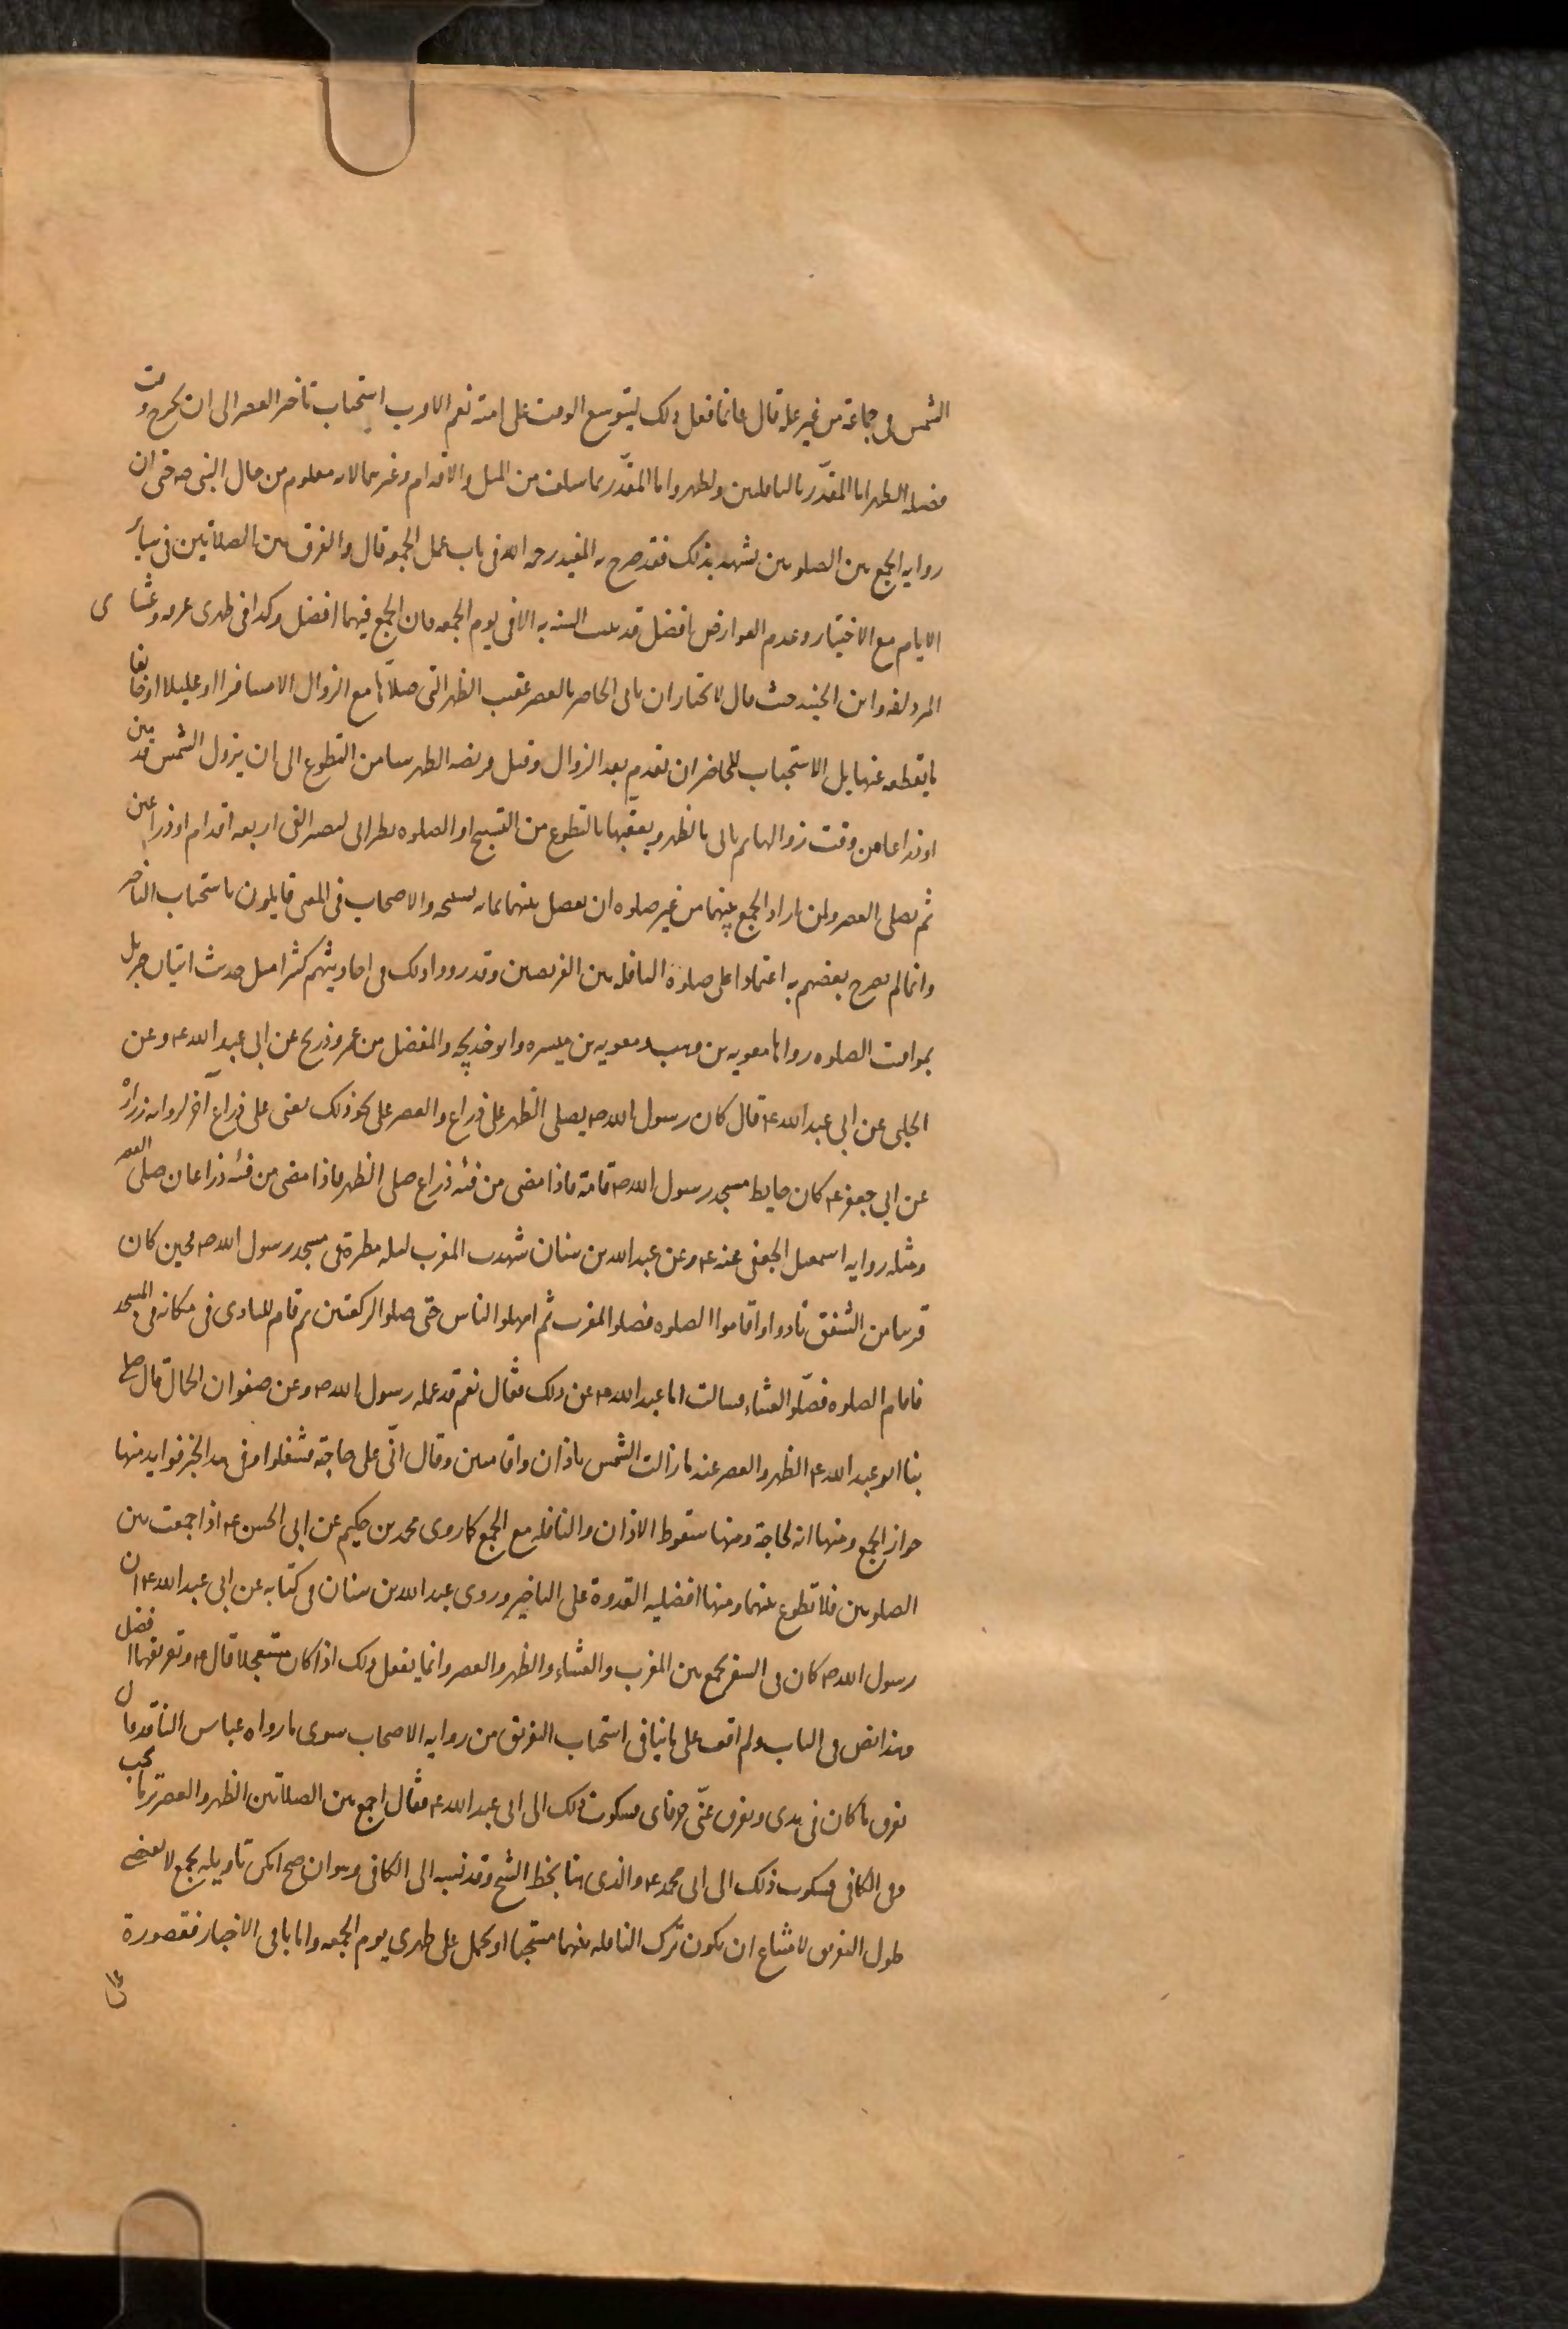 الشمس في جماعة من غير علة قال وانما فعل ذلك ليتوسع الوقت على امته نعم الاقرب استحباب تاخير العصر الى ان يخرج وقت
فضيله الظهر اما المقدر بالنافلتين والظهر واما المقدر بما سلف من المثل والاقدام وغيرهما لانه معلوم من حال النبي ص حتى ان
روايه الجمع بين الصلوتين تشهد بذلك فقد صرح به المفيد رحمه الله في باب عمل الجمعه قال والفرق بين الصلاتين في سائر
الايام مع الاختيار وعدم العوارض افضل قد ثبت السنه به الا في يوم الجمعه فان الجمع فيهما افضل وكذا في ظهري عرفه وعشاى
المزدلفه وابن الجنيد حيث قال لا نختار ان ياتى الحاضر بالعصر عقيب الظهر التى صلاها مع الزوال الا مسافرا او عليلا او خائفا
ما يقطعه عنها بل الاستحباب للحاضر ان يقدم بعد الزوال وقبل فريضه الظهر شيا من التطوع الى ان يزول الشمس قدمين
او ذراعا من وقت زوالها ثم ياتى بالظهر ويعقبها بالتطوع من التسبيح او الصلوه ليصير الفى اربعه اقدام او ذراعين
ثم يصلى العصر ولمن اراد الجمع بينهما من غير صلوه ان يفصل بينهما بمائه تسبيحه والاصحاب في المعنى قايلون باستحباب التاخير
وانما لم يصرح بعضهم به اعتمادا على صلوة النافله بين الفريضين وقد رووا ذلك في احاديثهم كثيرا مثل حديث اتيان جبريل
بمواقيت الصلوه رواها معويه بن وهب ومعويه بن ميسره وابو خديجه والمفضل بن عمر وذريح عن ابي عبد الله ع وعن
الحلبى عن ابي عبد الله ع قال كان رسول الله ص يصلى الظهر على ذراع والعصر على نحو ذلك يعنى على ذراع آخر لروايه زرارة
عن ابي جعفر ع كان حايط مسجد رسول الله ص قامة فاذا مضى من فيئه ذراع صلى الظهر فاذا مضى من فيئه ذراعان صلى العصر
ومثله روايه اسمعيل الجعفى عنه ع وعن عبد الله بن سنان شهدت المغرب ليله مطرة في مسجد رسول الله ص فحين كان
قريبا من الشفق نادوا واقاموا الصلوه فصلو المغرب ثم امهلوا الناس حتى صلو الركعتين ثم قام المنادى في مكانه في المسجد
فاقام الصلوه فصلو العشاء فسالت ابا عبد الله ع عن ذلك فقال نعم قد عمله رسول الله ص وعن صفوان الجمال قال صلى
بنا ابو عبد الله ع الظهر والعصر عند ما زالت الشمس باذان واقامتين وقال انى على حاجة فتنفلوا وفي هذا الخبر فوايد منها
جواز الجمع ومنها انه لحاجة ومنها سقوط الاذان والنافله مع الجمع كما روى محمد بن حكيم عن ابي الحسن ع اذا جمعت بين
الصلوتين فلا تطوع بينهما ومنها افضليه القدوة على التاخير وروى عبد الله بن سنان في كتابه عن ابي عبد الله ع ان
رسول الله ص كان في السفر يجمع بين المغرب والعشاء والظهر والعصر وانما يفعل ذلك اذا كان مستعجلا قال ع وتفريقهما افضل
وهذا نص في الباب ولم اقف على ما ينافى استحباب التفريق من روايه الاصحاب سوى ما رواه عباس الناقد قال
تفرق ما كان في يدى وتفرق عنى حرفاى فشكوت ذلك الى ابي عبد الله ع فقال اجمع بين الصلاتين الظهر والعصر ترى ما تحب
وفى الكافى فشكوت ذلك الى ابي محمد ع والذى هنا بخط الشيخ وقد نسبه الى الكافى وهو ان صح امكن تاويله بجمع لا يقتضى
طول التفريق لامتناع ان يكون ترك النافله بينهما مستحبا او يحمل على ظهري يوم الجمعه واما باقى الاخبار فمقصورة